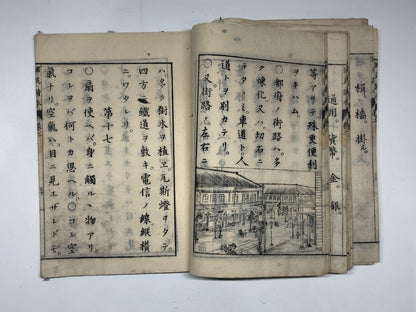 等アリテ殊更便利
〇都府ノ街路ハ多
ク煉化又ハ切石ニ
テ車道ト人
道トヲ別カテリ
〇又街路ノ左右ニ
ハ多ク樹木ヲ植エ瓦斯燈ヲタテ
四方ニ鐵道ヲ敷キ電信ノ線縱横
ニワタレリ
第十七
〇扇ヲ使ヘバ身ニ觸ルヽ物アリ
コレヲバ何トカ思ヘル〇コハ空
氣ナリ空氣ハ目ニ見エザレドモ
通用ノ貨幣金銀